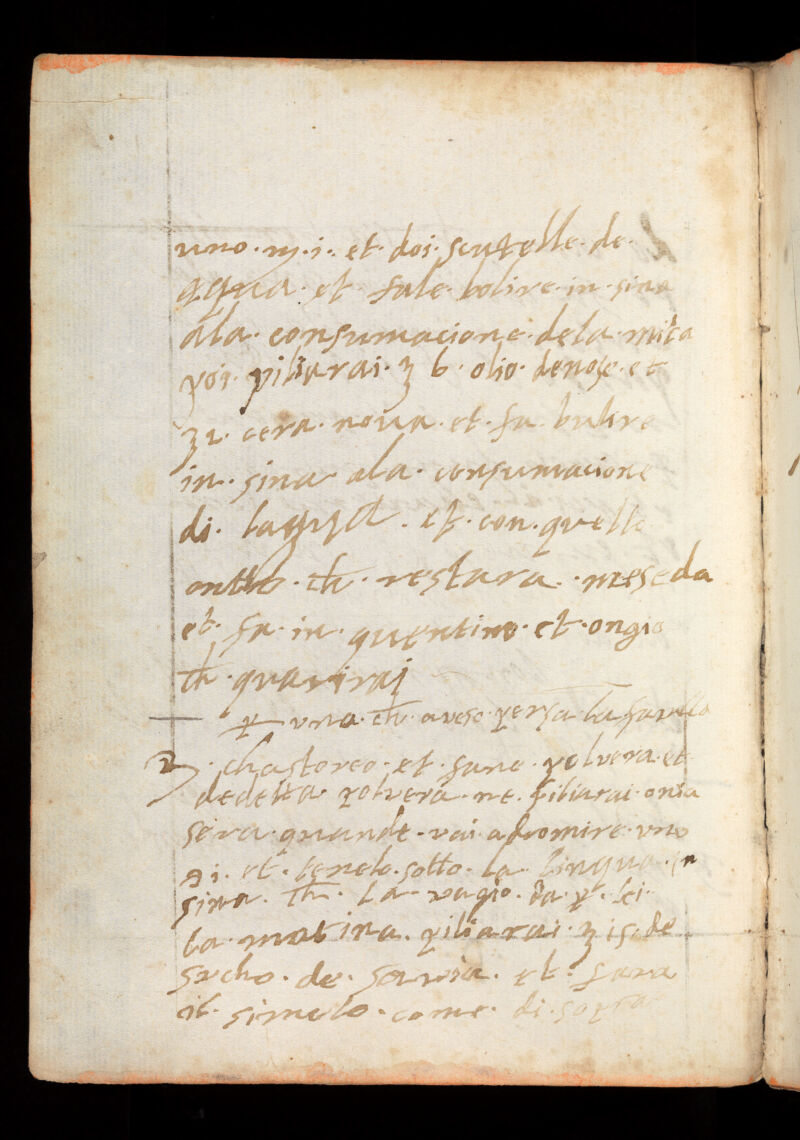 uno · m · i · et · doi · scutelle · de ·
aqua · et · fale · bolire · in · sina
ala · consumacione · dela · mita
poi · piliarai · ʒ 6 · olio · denose · et
ʒ 2 · cera · nova · et · fa · bulire
in · sina · ala · consumacione
di · laqua · et · con · quello
onto · ch · restara · meseda
et · fa · in · quentino · et · ongio
ch · quarirai
p · una · ch · aveso · persa · la favella
chastoreo · et · fane · polvera · et
dedetta · polvera · ne · piliarai · onia
sera · quande · vai · adromire · uno
et · tenelo · sotto · la · lingua · in
sina · ch · la · vagio · da · p · lei ·
la · matina · piliarai · ʒ i se de
sucho · de · savia · et · fara
it · simelo · come · di · sopra